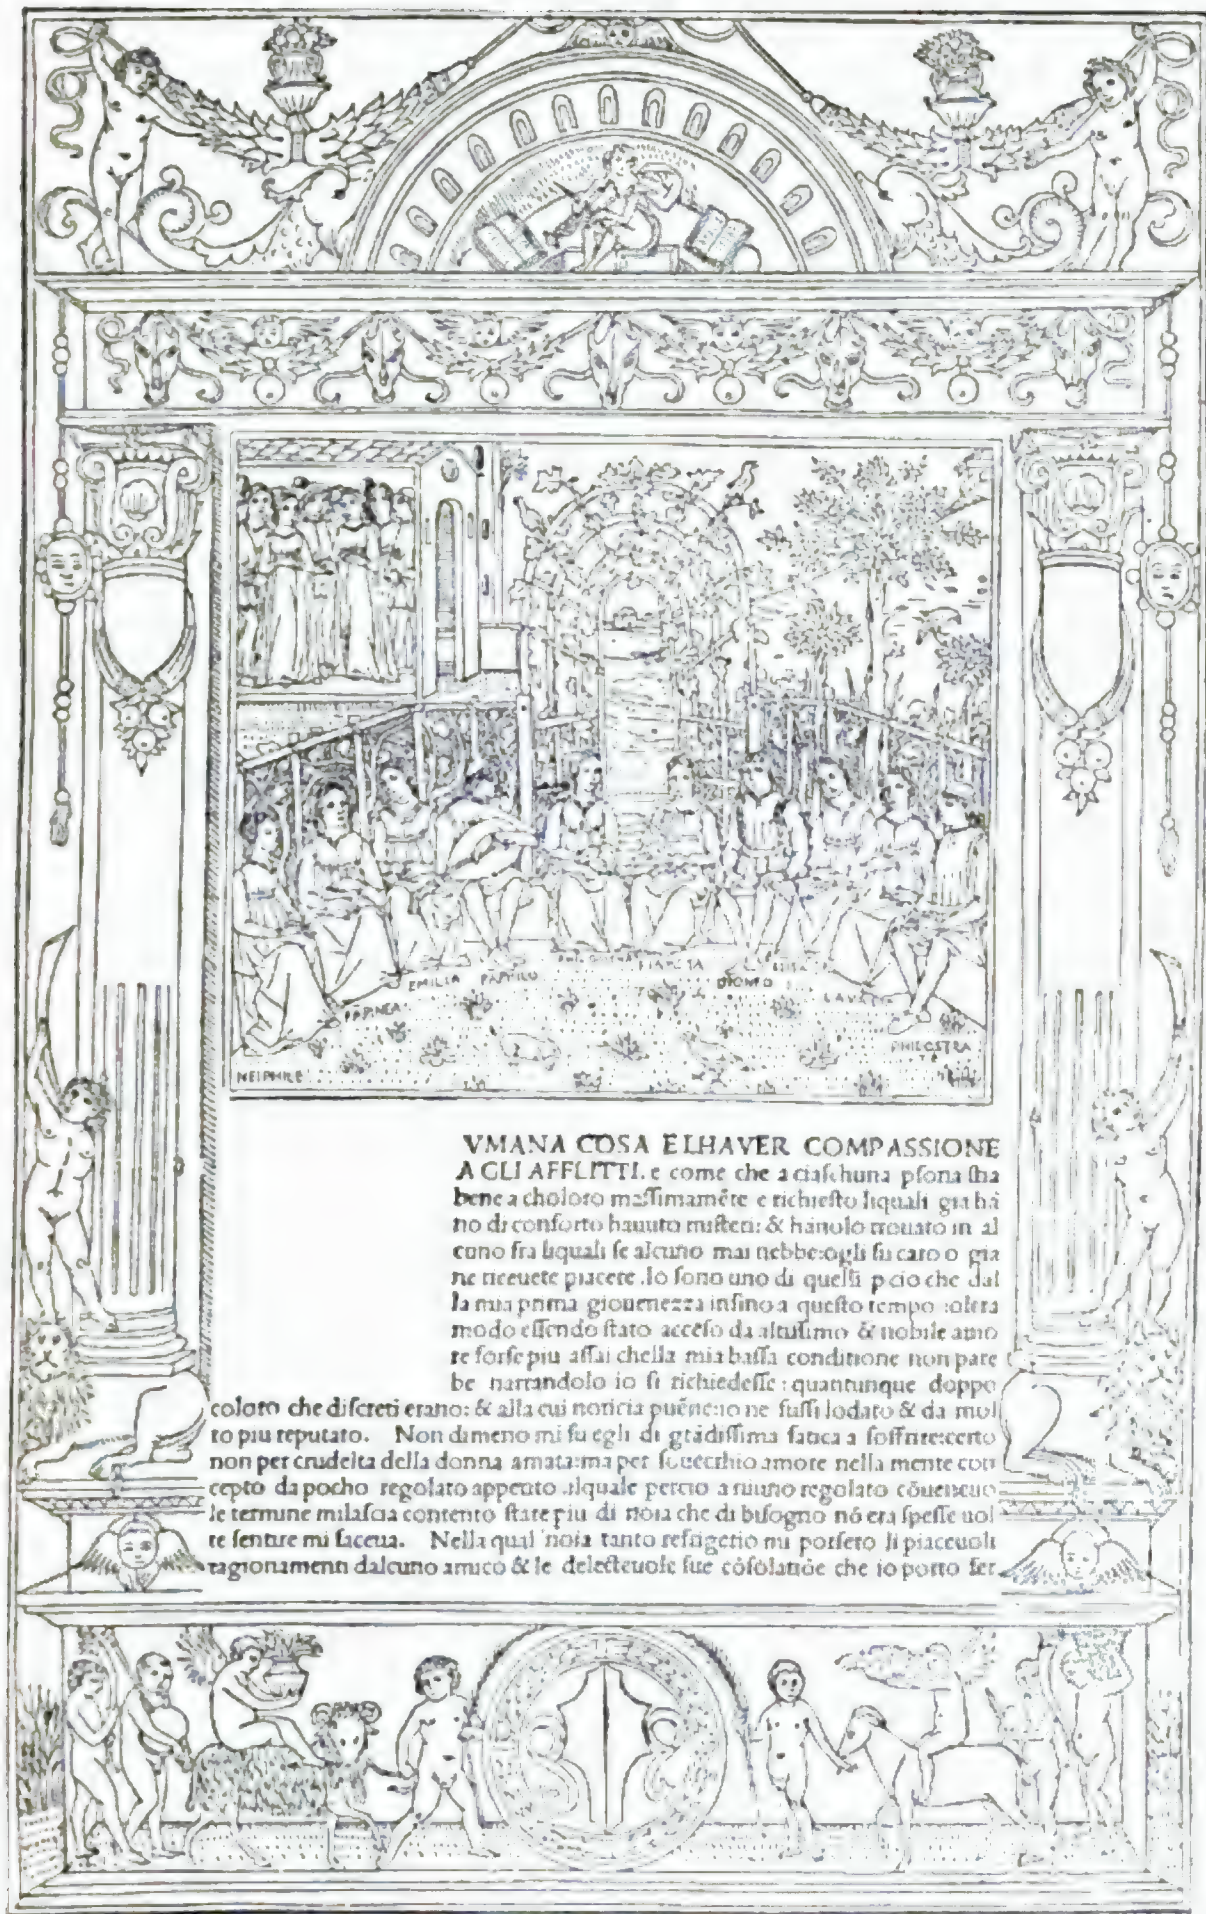 EMILIA PAMPHILO FIAMETA DIONEO
PAPINEA
NEIPHILE PHILOSTRA
VMANA COSA E LHAVER COMPASSIONE
A GLI AFFLITTI. e come che a ciaſchuna pſona ſtia
bene a choloro maſſimamēte e richieſto liquali gia hā
no di conforto hauuto miſteri: & hānolo trouato in al
cuno fra liquali ſe alcuno mai nebbe: ogli fu caro o gia
ne riceuete piacere .Io ſono uno di quelli p cio che dal
la mia prima giouenezza inſino a queſto tempo oltra
modo eſſendo ſtato acceſo da altiſſimo & nobile amo
re forſe piu aſſai chella mia baſſa conditione non pare
be narrandolo io ſi richiedeſſe: quantunque doppo
coloro che diſcreti erano: & alla cui noticia puēne io ne fuſſi lodato & da mol
to piu reputato. Non dimeno mi fu egli di grādiſſima fatica a ſoffrire: certo
non per crudelta della donna amata: ma per ſouerchio amore nella mente con
cepto da pocho regolato appetito .ilquale percio a niuno regolato cōueneuo
le termine milaſcia contento ſtare piu di noia che di biſogno nō era ſpeſſe uol
te ſentire mi faceua. Nella qual noia tanto refrigerio mi porſero li piaceuoli
ragionamenti dalcuno amico & le delecteuole ſue cōſolatiōe che io porto fer